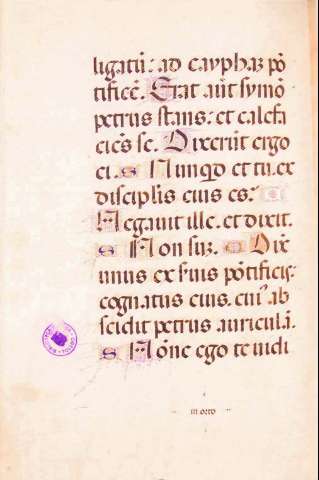 ligatū: ad cayphaz pō
tificē. Erat aūt symō
petrus stans: et calefa
ciēs se. Dixerūt ergo
ei. S Nunqd et tu ex
disciplis eius es:
Negauit ille. et dixit.
S Non suz. Dix̄
unus ex suis pōtificis:
cognatus eius. cuiꝰ ab
scidit petrus auriculā.
S Nōne ego te uidi
in orto